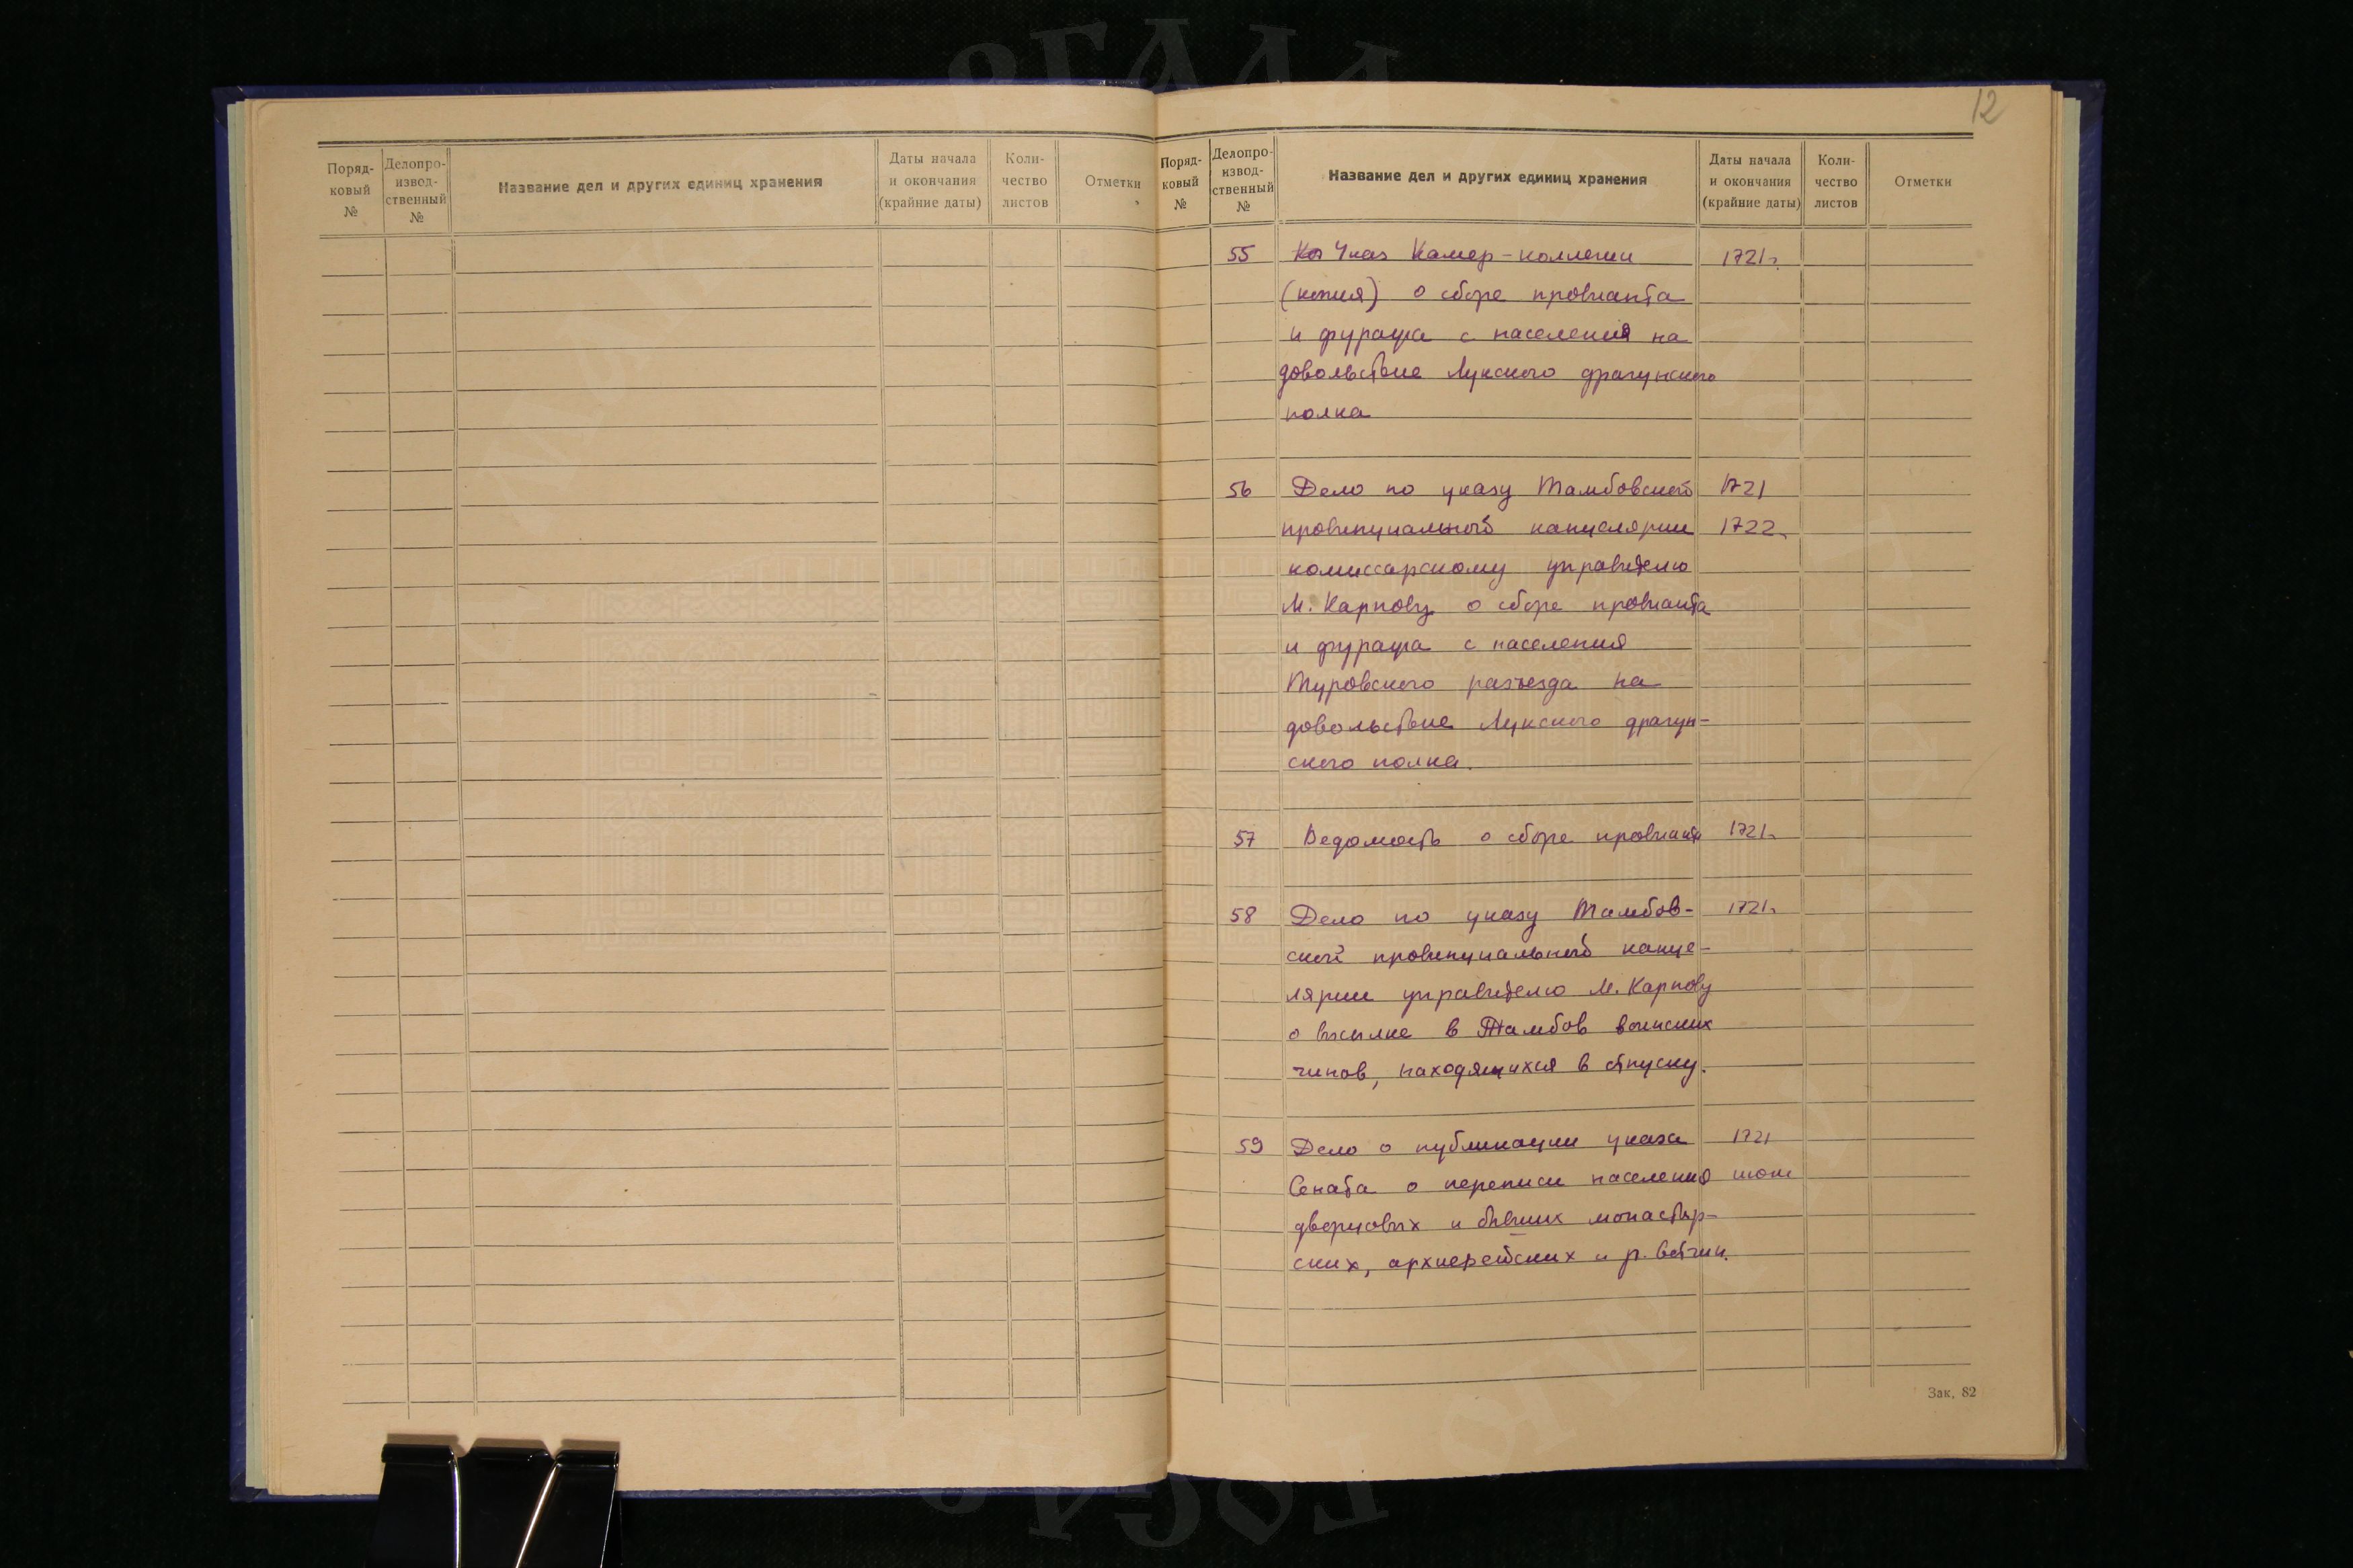 12
Поряд-
ковый
№
Делопро-
извод-
ственный
№
Название дел и других единиц хранения
Даты начала
и окончания
(крайние даты)
Коли-
чество
листов
Отметки
Поряд-
ковый
№
Делопро-
извод-
ственный
№
Название дел и других единиц хранения
Даты начала
и окончания
(крайние даты)
Коли-
чество
листов
Отметки
55 Указ Камер-коллегии 1721г.
(копия) о сборе провианта
и фуража с населения на
довольствие Лукского драгунского
полка
56 Дело по указу Тамбовской 1721
провинциальной канцелярии 1722г.
комиссарскому управителю
М. Карпову о сборе провианта
и фуража с населения
Туровского разъезда на
довольствие Лукского драгун-
ского полка.
57 Ведомость о сборе провианта 1721г.
58 Дело по указу Тамбов- 1721г.
ской провинциальной канце-
лярии управителю М. Карпову
о высылке в Тамбов воинских
чинов, находящихся в отпуску.
59 Дело о публикации указа 1721
Сената о переписи населения июль
дворцовых и бывших монастыр-
ских, архиерейских и р. вотчин.
Зак. 82